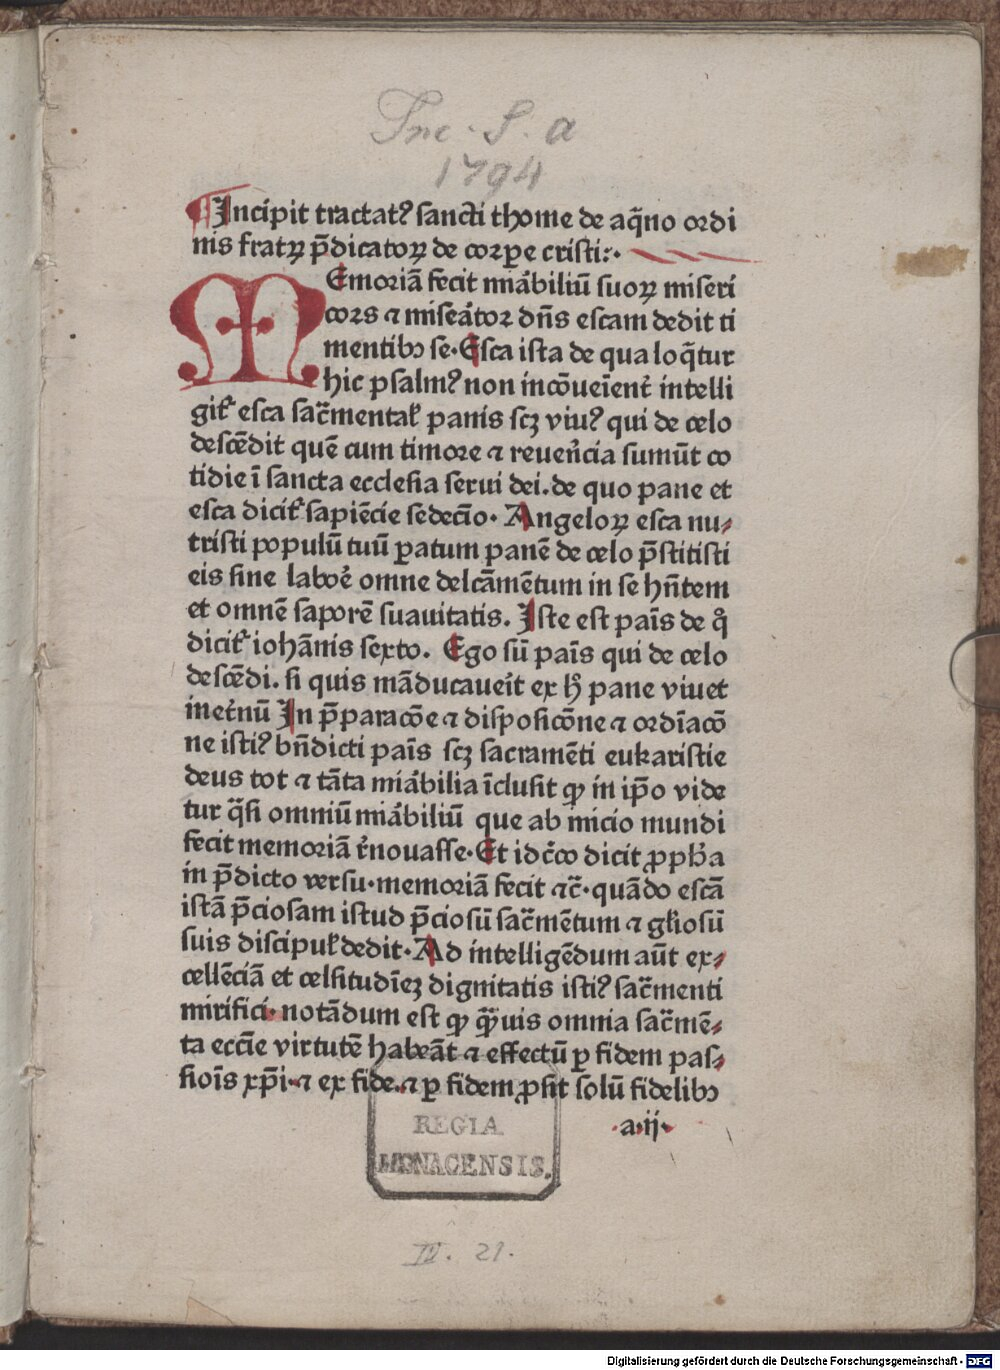 Inc. S. a
1794
Incipit tractatꝰ sancti thome de aq̄no ordi
nis fratꝝ p̄dicatoꝝ de corꝑe cristi:·
MEmoriā fecit mirabiliū suoꝝ miseri
cors ⁊ miserator dn̄s escam dedit ti
mentibꝫ se. Esca ista de qua loq̄tur
hic psalmꝰ non incōueniēnt intelli
git᷑ esca sac̄mentaꝉ panis scꝫ viuꝰ qui de celo
descēdit quē cum timore ⁊ reuer̄cia sumūt co
tidie ī sancta ecclesia serui dei. de quo pane et
esca dicit᷑ sapiēcie sedecīo. Angeloꝝ esca nu⸗
tristi populū tuū ꝑatum panē de celo p̄stitisti
eis sine labor̄e omne delcāmētum in se hn̄tem
et omnē saporē suauitatis. Iste est pan̄is de qͦ
dicit᷑ iohānis sexto. Ego sū pan̄is qui de celo
descēdi. si quis māducauerit ex hͦ pane viuet
inet̄nū In p̄paracōe ⁊ disposicōne ⁊ ordīacō
ne istiꝰ bn̄dicti pan̄is scꝫ sacramēti eukaristie
deus tot ⁊ tāta mirabilia īclusit ꝙ in ip̄o vide
tur q̄si omniū mirabiliū que ab inicio mundi
fecit memoriā r̄nouasse. Et idc̄co dicit ꝓpħa
in p̄dicto versu. memoriā fecit ⁊c̄. quādo escā
istā p̄ciosam istud p̄ciosū sac̄mētum ⁊ gꝉiosū
suis discipuꝉ dedit. Ad intelligēdum aūt ex⸗
cellēciā et celsitudīeꝫ dignitatis istiꝰ sac̄menti
mirifici. notādum est ꝙ qͣ̄uis omnia sac̄mē⸗
ta ecc̄ie virtutē habeāt ⁊ effectū ꝑ fidem pas⸗
siōis xp̄i. ⁊ ex fide. ⁊ ꝑ fidem ꝓsit solū fidelibꝫ
a.ij.
REGIA
MONACENSIS.
IV. 21.
Digitalisierung gefördert durch die Deutsche Forschungsgemeinschaft - DFG